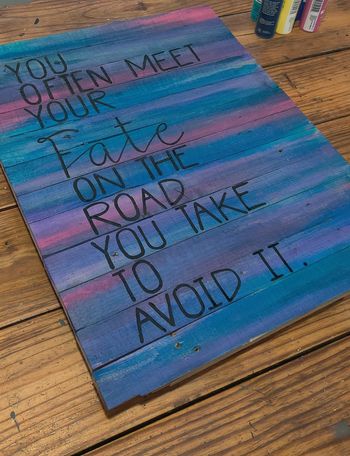 YOU
OFTEN MEET
YOUR
Fate
ON THE
ROAD
YOU TAKE
TO
AVOID IT.